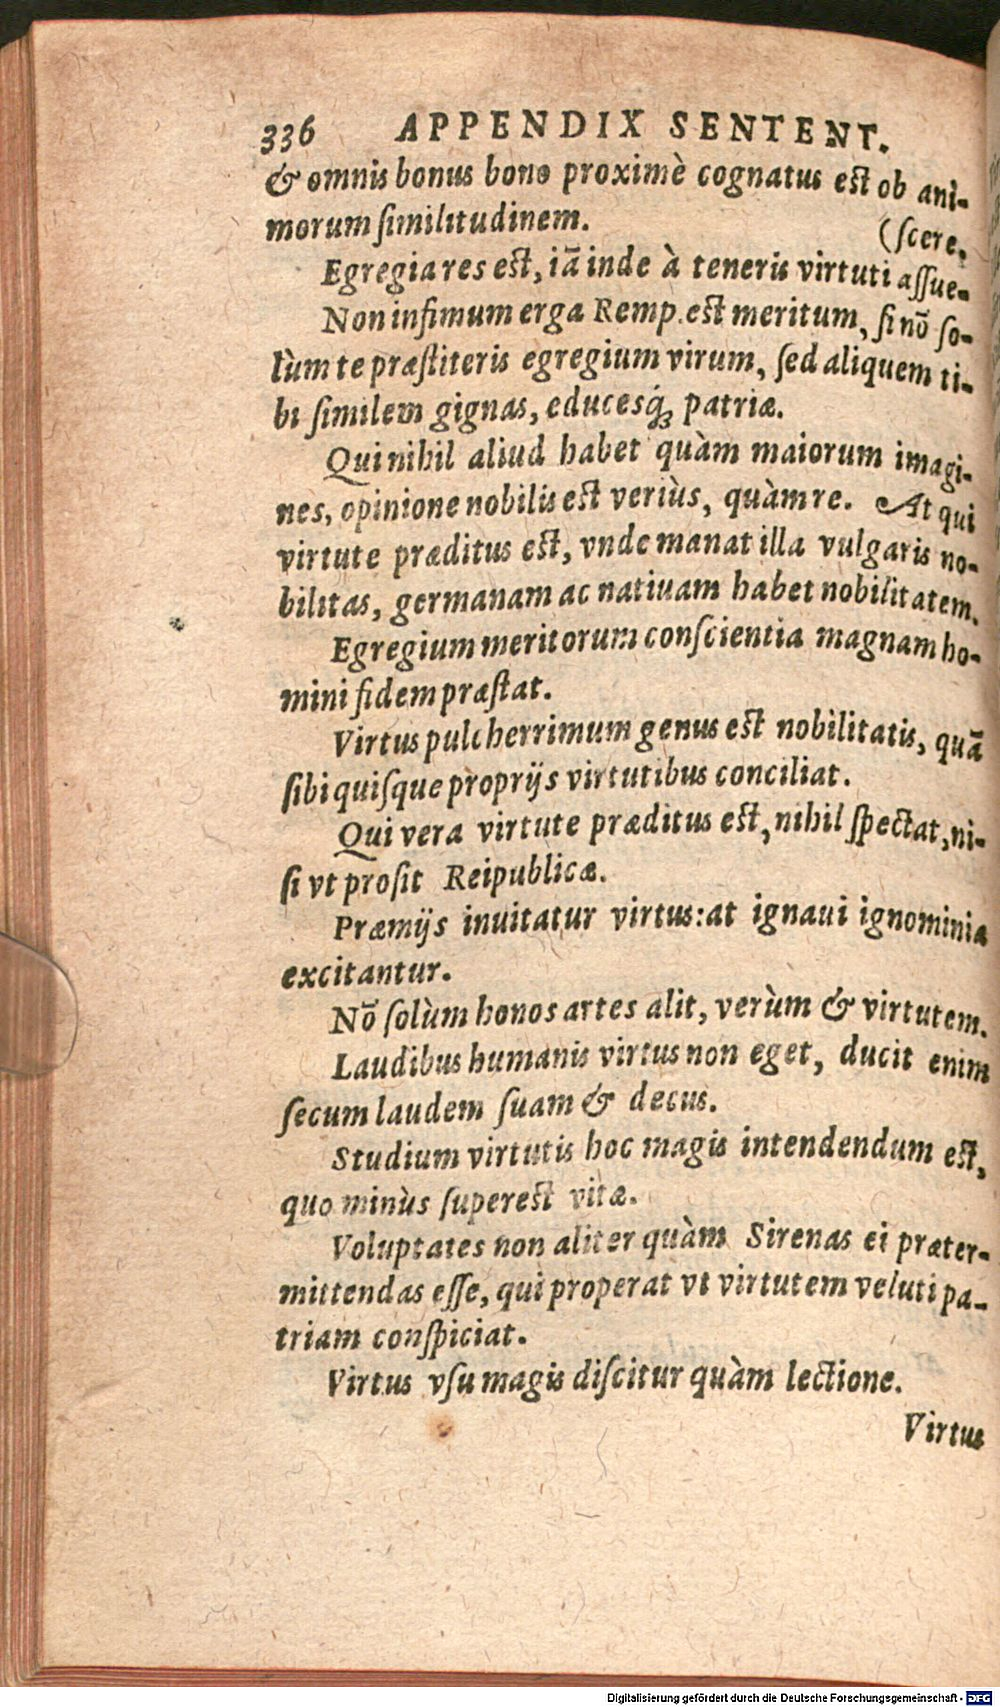 336 APPENDIX SENTENT.
& omnis bonus bono proximè cognatus est ob ani-
morum ſimilitudinem. (ſcere,
Egregia res est, iā inde à teneris virtuti aſſue-
Non infimum erga Remp. est meritum, ſi nō ſo-
lùm te præſtiteris egregium virum, ſed aliquem ti-
bi ſimilem gignas, educesq́; patriæ.
Qui nihil aliud habet quàm maiorum imagi-
nes, opinione nobilis est veriùs, quàm re. At qui
virtute præditus est, vnde manat illa vulgaris no-
bilitas, germanam ac natiuam habet nobilitatem.
Egregium meritorum conſcientia magnam ho-
mini fidem præſtat.
Virtus pulcherrimum genus est nobilitatis, quā
ſibi quiſque proprijs virtutibus conciliat.
Qui vera virtute præditus est, nihil ſpectat, ni-
ſi vt proſit Reipublicæ.
Præmijs inuitatur virtus: at ignaui ignominia
excitantur.
Nō ſolùm honos artes alit, verùm & virtutem.
Laudibus humanis virtus non eget, ducit enim
ſecum laudem ſuam & decus.
Studium virtutis hoc magis intendendum est,
quo minùs ſuperest vitæ.
Voluptates non aliter quàm Sirenas ei præter-
mittendas eſſe, qui properat vt virtutem veluti pa-
triam conſpiciat.
Virtus vſu magis diſcitur quàm lectione.
Virtus
Digitalisierung gefördert durch die Deutsche Forschungsgemeinschaft - DFG